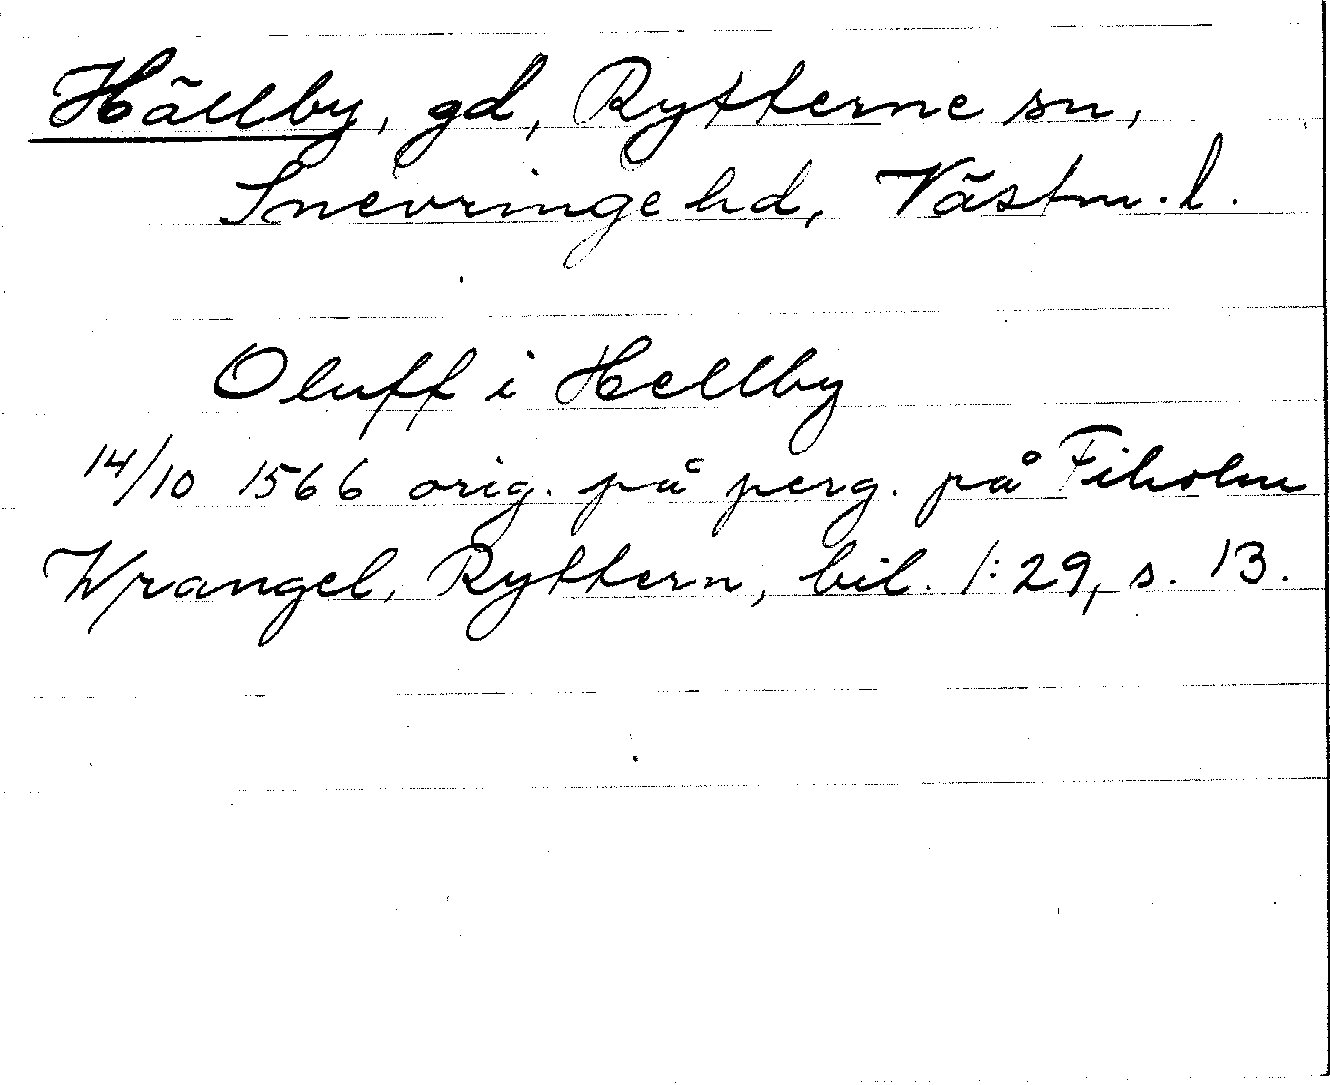 Hällby, gd, Rytterne sn,
Snevringe hd, Västm. l.
Oluff i Hellby
14/10 1566 orig. på perg. på Fiholm
Wrangel, Ryttern, bil. 1:29, s. 13.